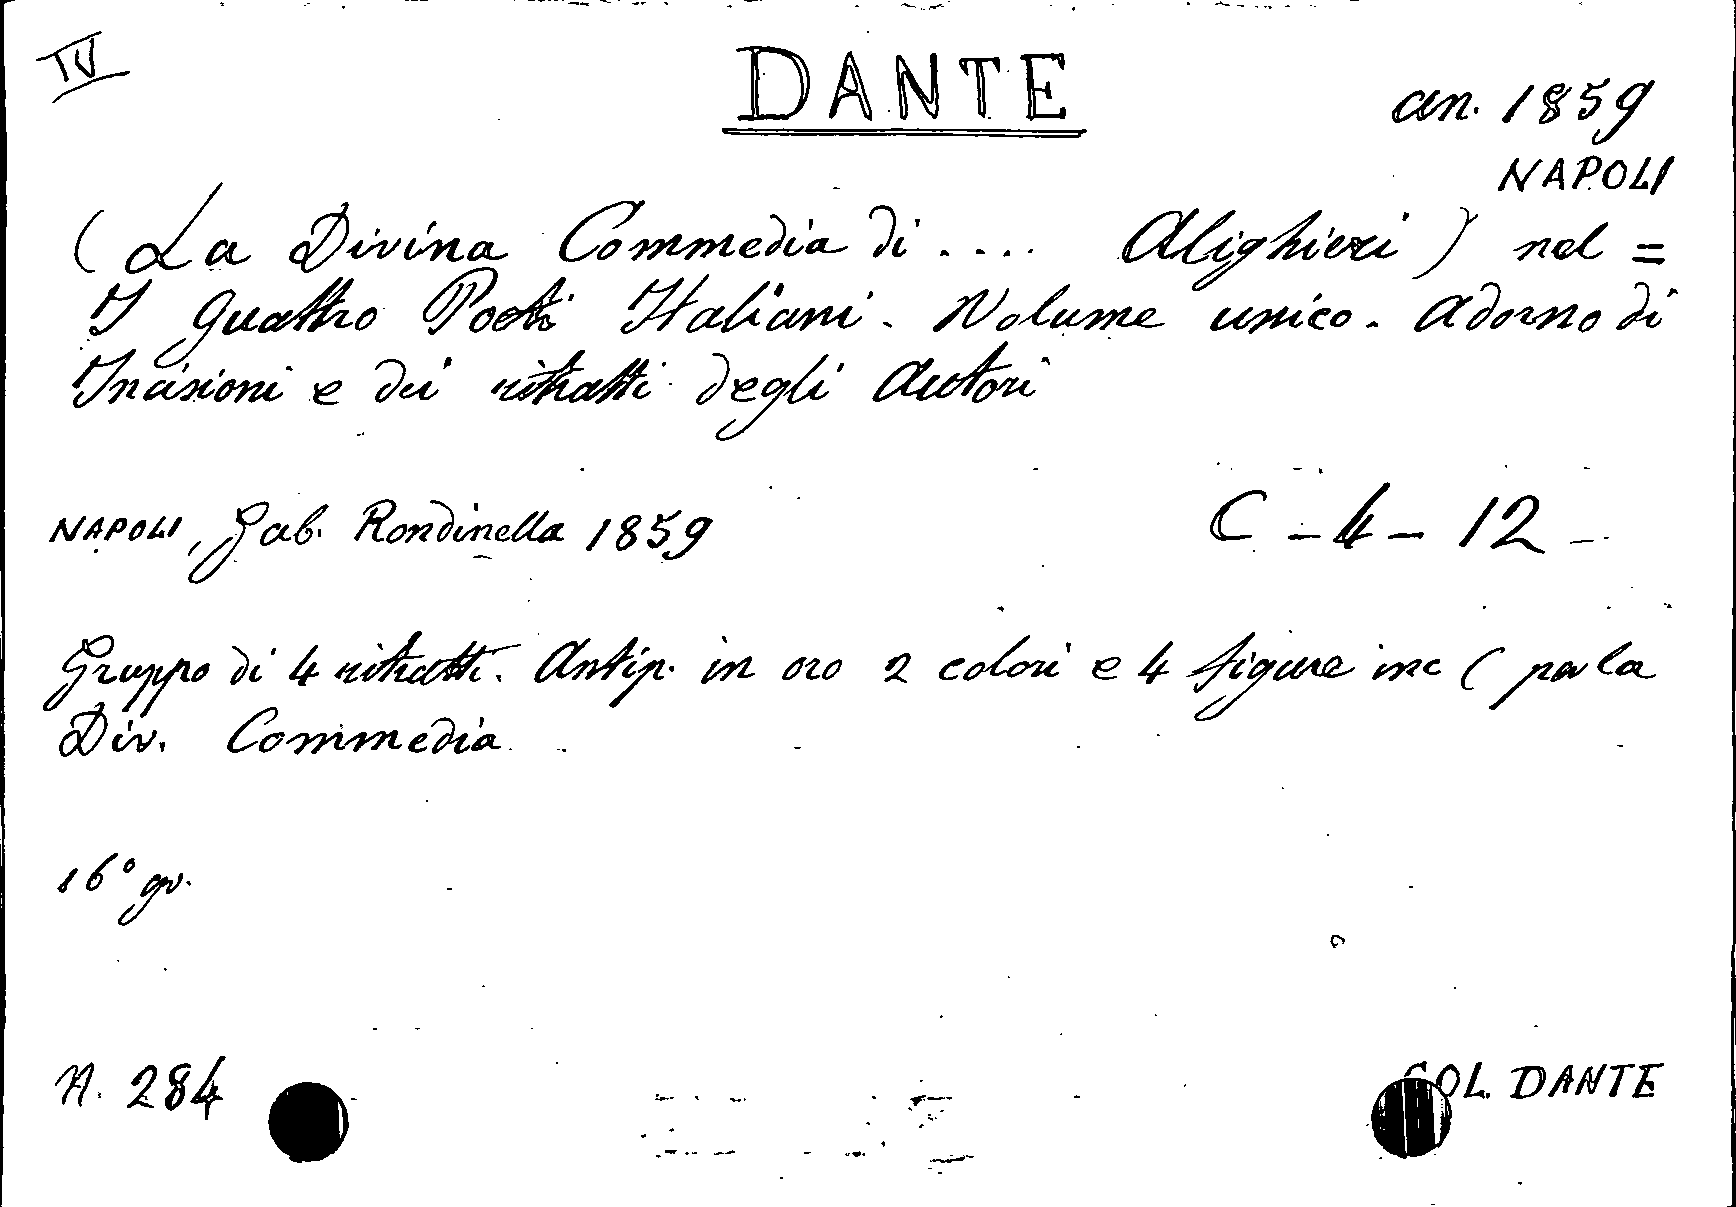 IV
DANTE
an. 1859
NAPOLI
(La Divina Commedia di .... Alighieri) nel =
I Quattro Poeti Italiani. Volume unico. Adorno di
Incisioni e dei ritratti degli Autori
NAPOLI, Gab. Rondinella 1859
C - 4 - 12 -
Gruppo di 4 ritratti. Antip. in oro 2 colori e 4 figure inc ( per la
Div. Commedia
16° gr.
N. 284
COL. DANTE